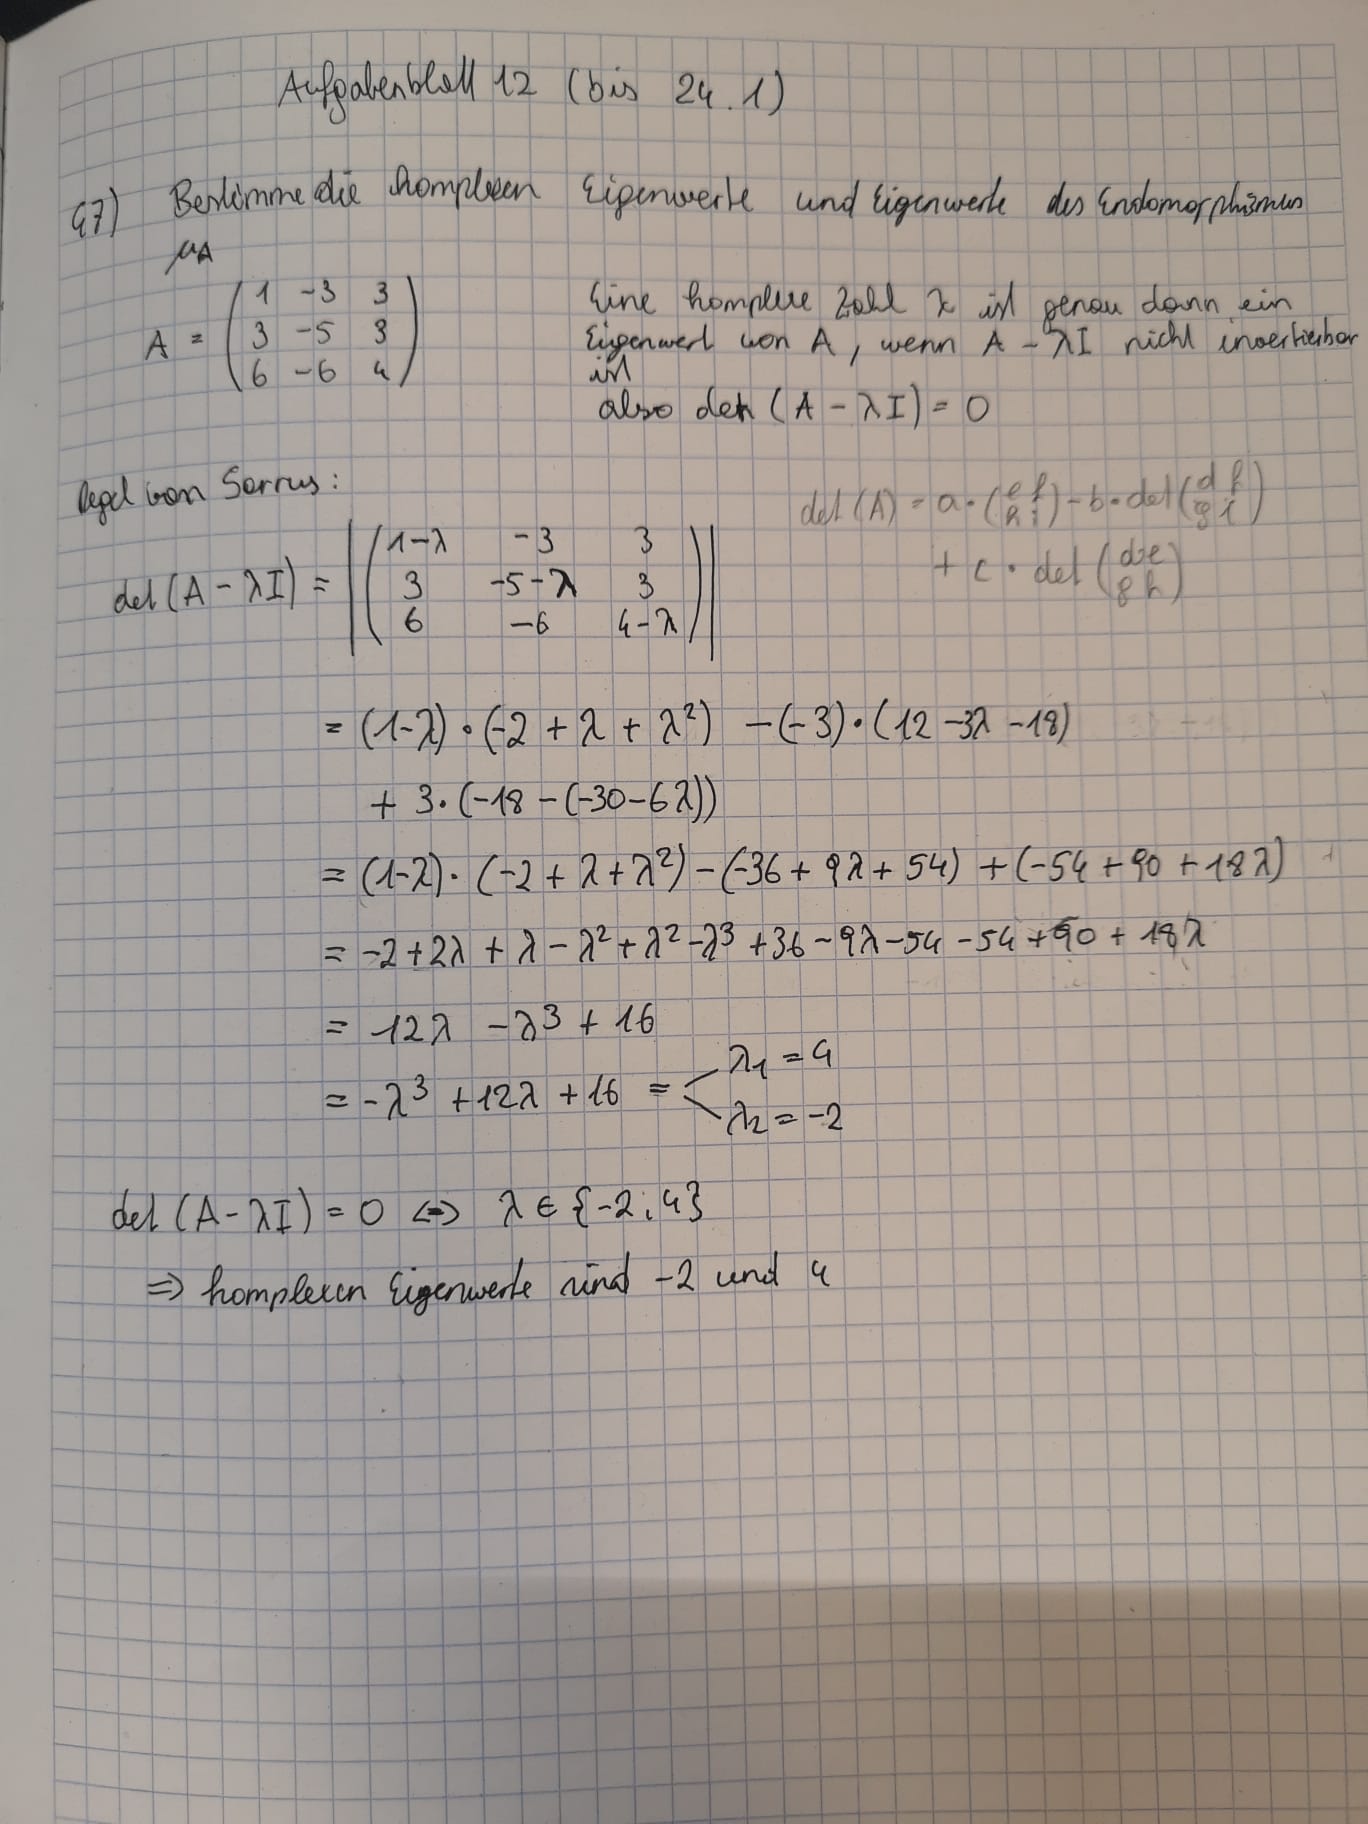 Aufgabenblatt 12 (bis 24.1)
47) Bestimme die komplexen Eigenwerte und Eigenwerte des Endomorphismus
μA
A = ( 1 -3 3
3 -5 3
6 -6 4 )
Eine komplexe Zahl λ ist genau dann ein
Eigenwert von A, wenn A - λI nicht invertierbar
ist
also det (A - λI) = 0
Regel von Sarrus:
det (A) = a · (e f
h i) - b · det (d f
g i)
+ c · det (d e
g h)
det (A - λI) = |( 1-λ -3 3
3 -5-λ 3
6 -6 4-λ )|
= (1-λ) · (-2 + λ + λ²) - (-3) · (12 - 3λ - 18)
+ 3 · (-18 - (-30 - 6λ))
= (1-λ) · (-2 + λ + λ²) - (-36 + 9λ + 54) + (-54 + 90 + 18λ)
= -2 + 2λ + λ - λ² + λ² - λ³ + 36 - 9λ - 54 - 54 + 90 + 18λ
= 12λ - λ³ + 16
= -λ³ + 12λ + 16 = < λ1 = 4
λ2 = -2
det (A - λI) = 0 <=> λ ∈ {-2; 4}
=> komplexen Eigenwerte sind -2 und 4